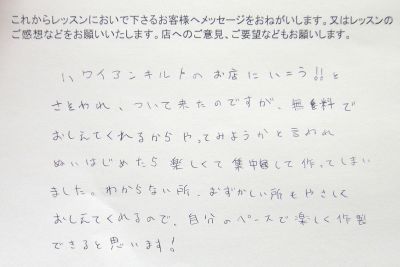 これからレッスンにおいで下さるお客様へメッセージをおねがいします。又はレッスンの
ご感想などをお願いいたします。店へのご意見、ご要望などもお願いします。
ハワイアンキルトのお店にいこう!!と
さそわれ、ついて来たのですが、無料で
おしえてくれるからやってみようかと言われ
ぬいはじめたら楽しくて集中して作ってしまい
ました。わからない所、おずかしい所もやさしく
おしえてくれるので、自分のペースで楽しく作製
できると思います!